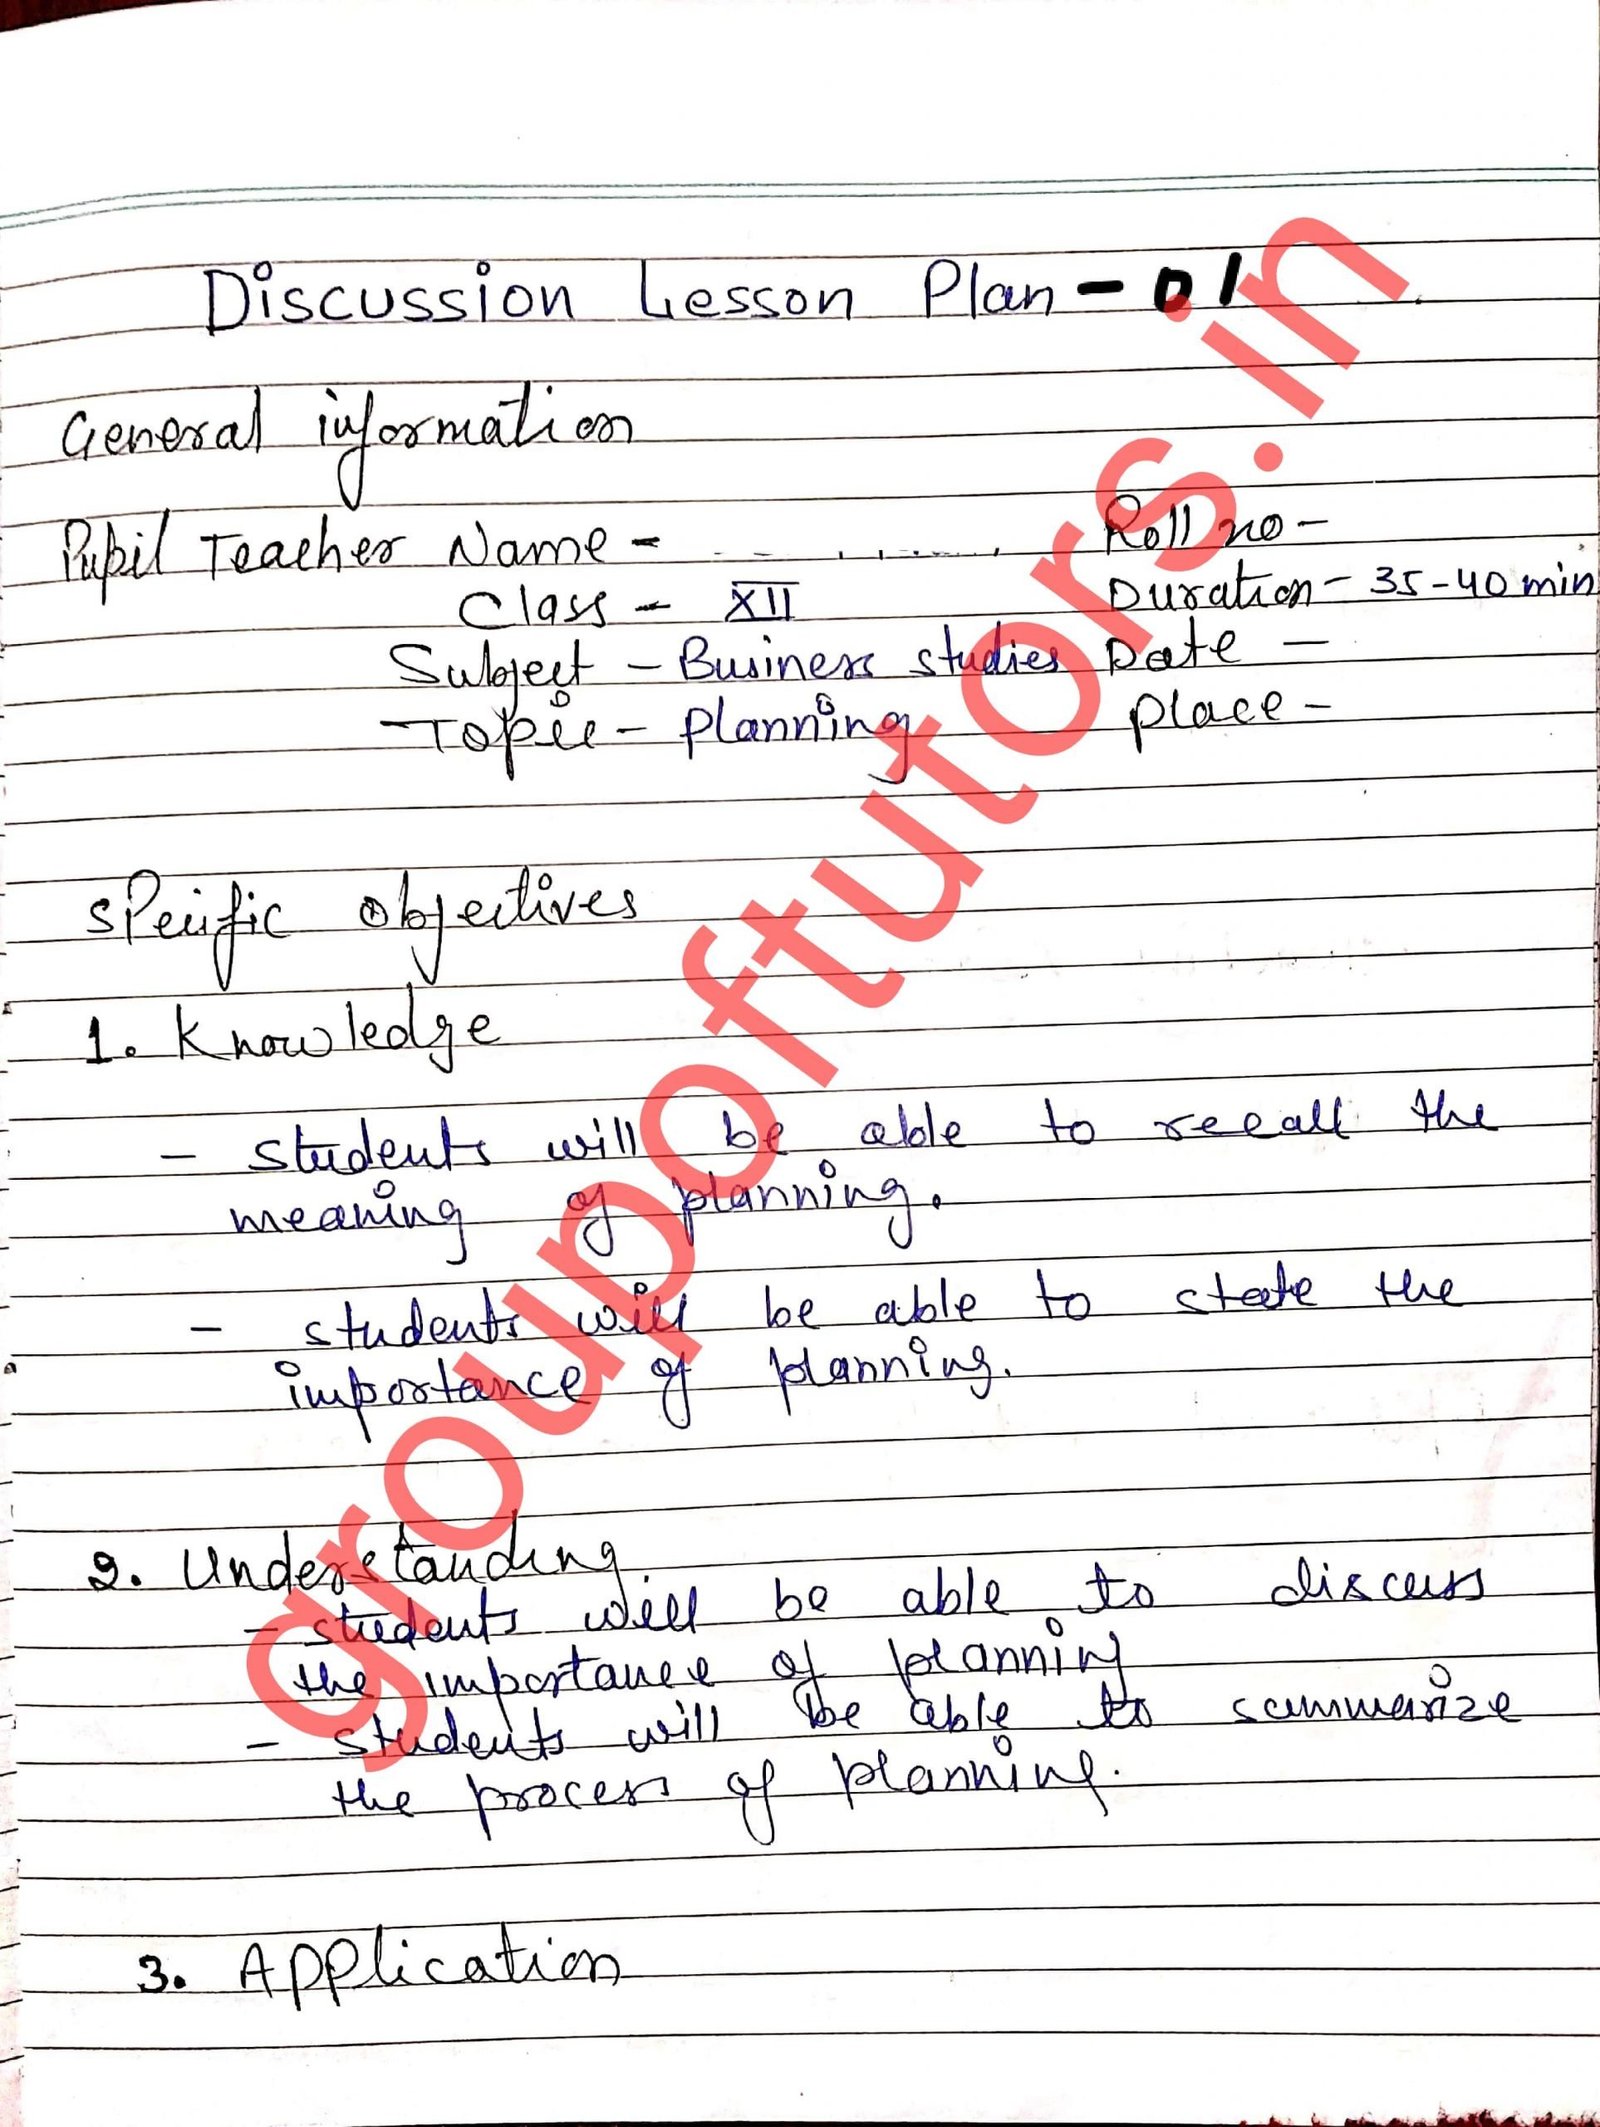 Discussion Lesson Plan - 01
General information
Pupil Teacher Name - .......... Roll no -
Class - XII Duration - 35-40 min
Subject - Business studies Date -
Topic - Planning Place -
Specific objectives
1. Knowledge
- students will be able to recall the
meaning of planning.
- students will be able to state the
importance of planning.
2. Understanding
- students will be able to discuss
the importance of planning
- students will be able to summarize
the process of planning.
3. Application
groupoftutors.in